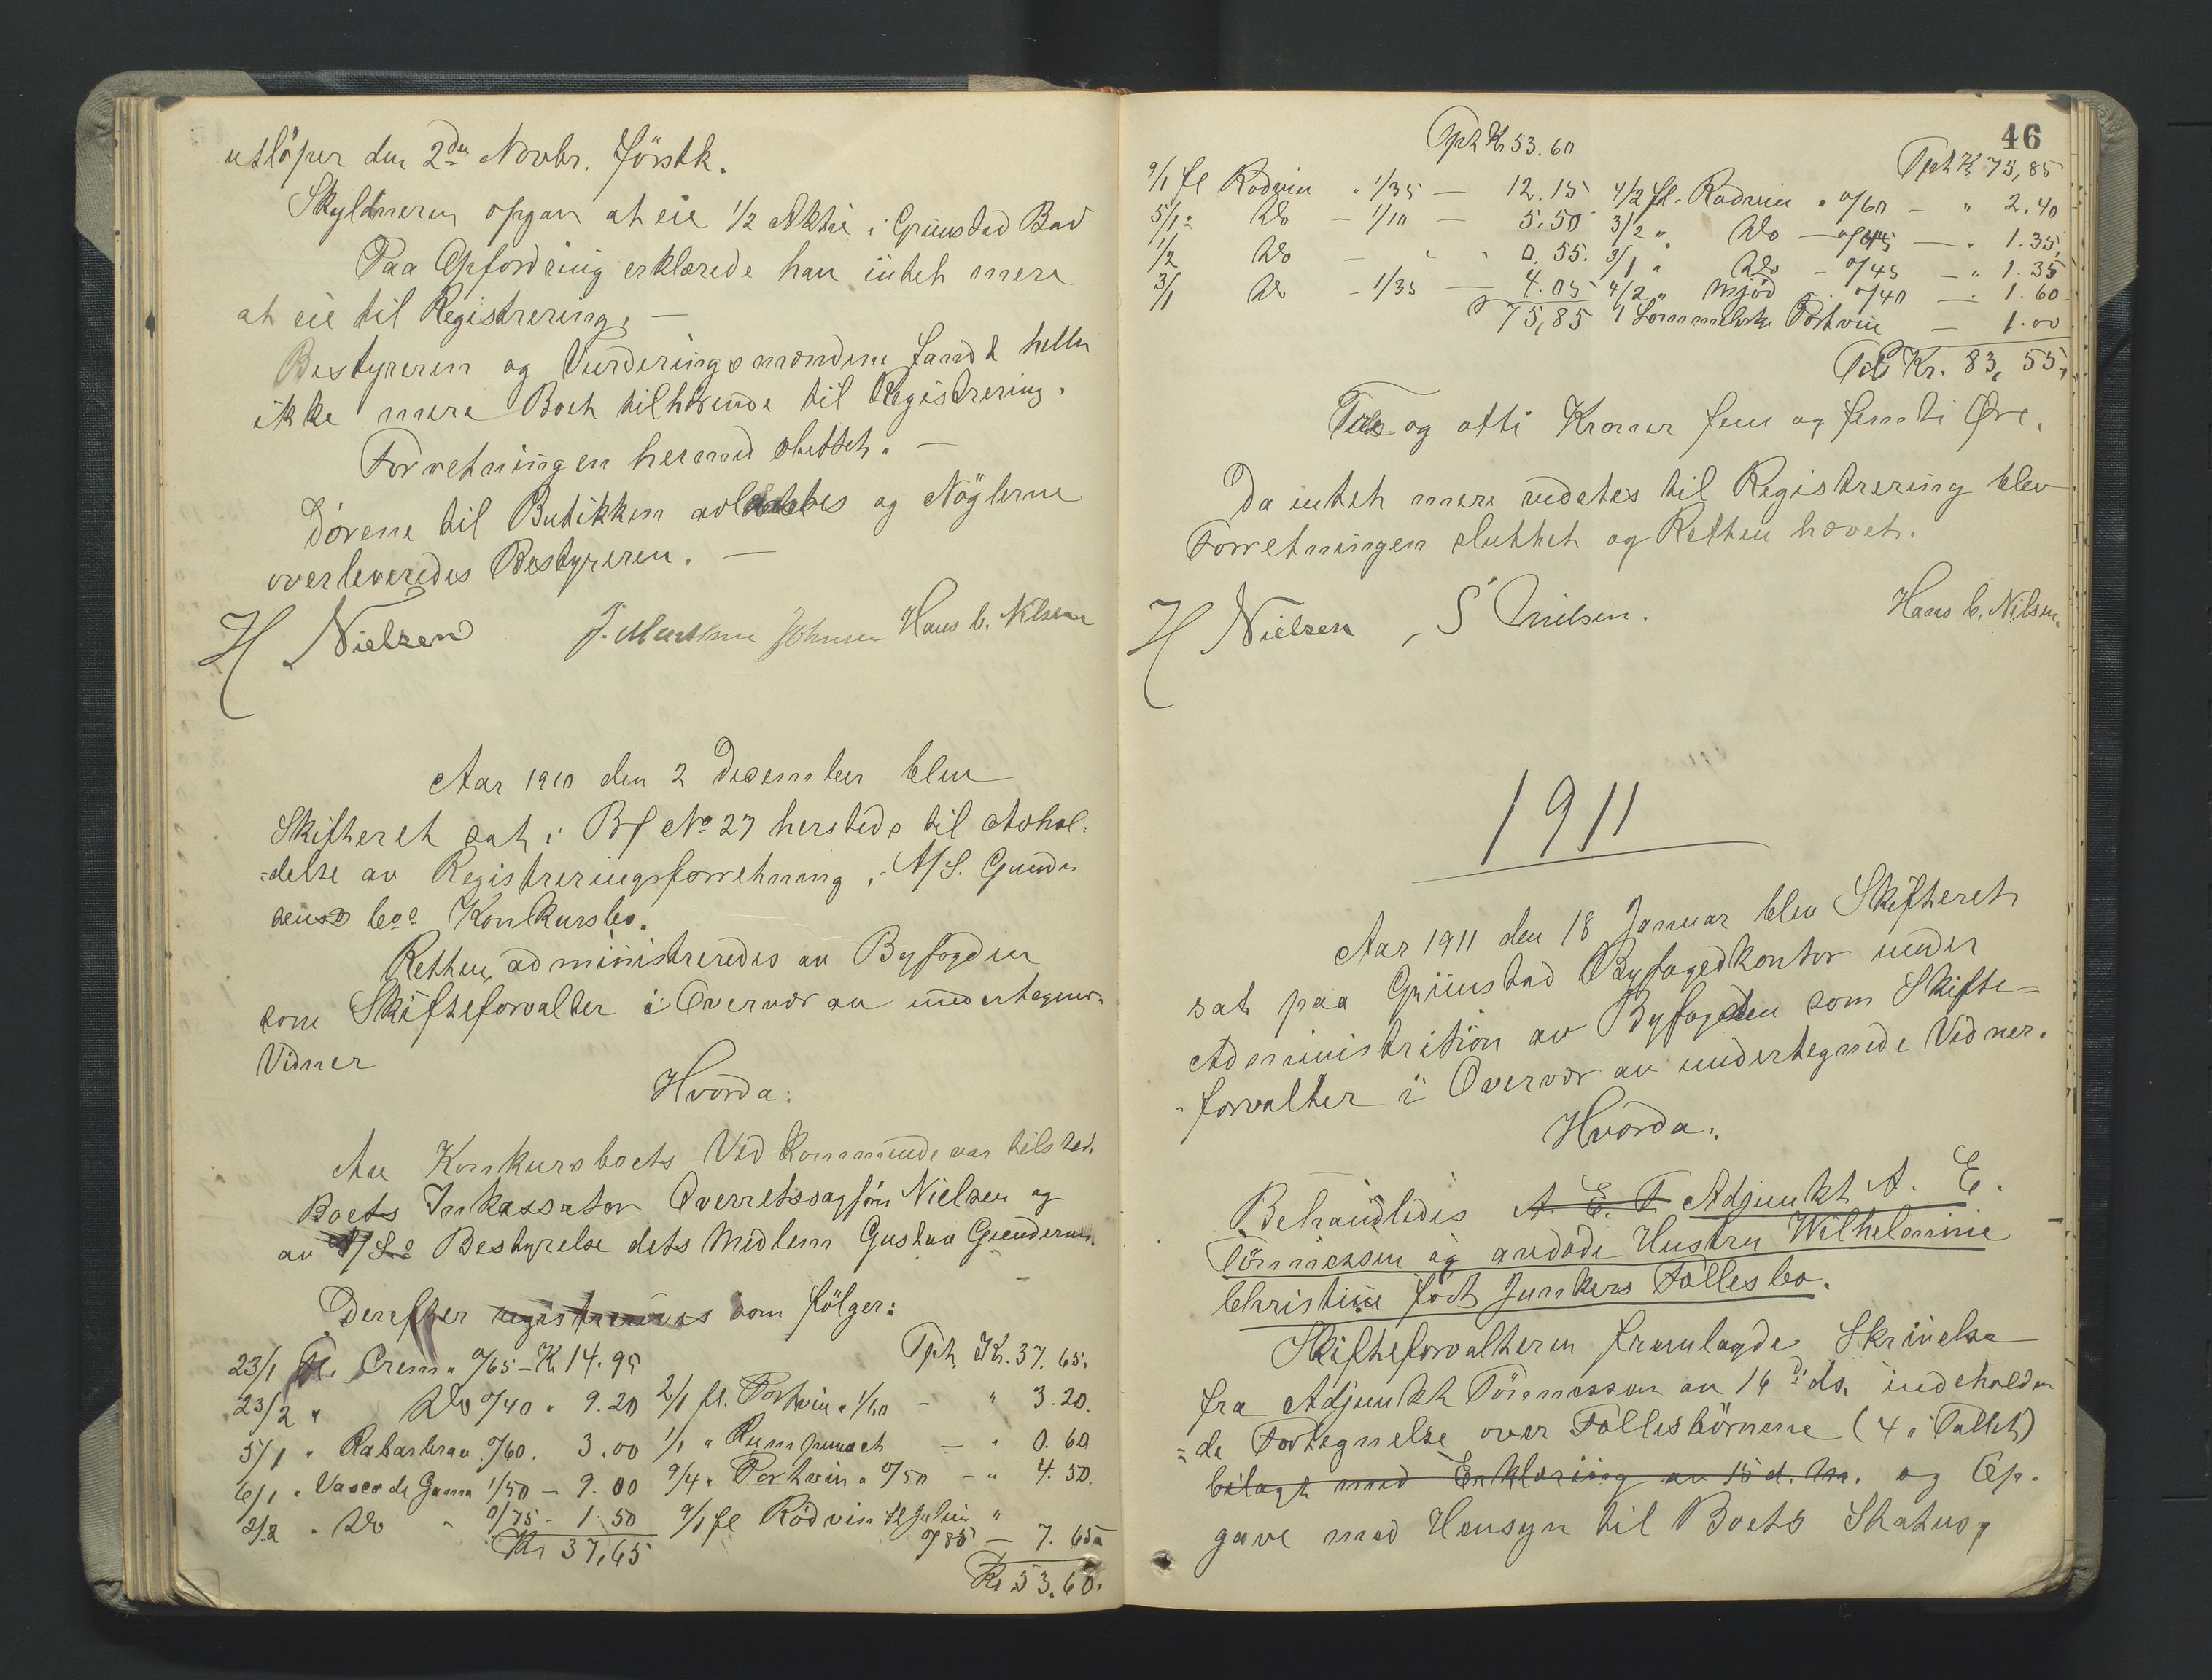 utløper den 2den Novbr. førstk.
Skyldneren opgav at eie 1/2 Aktie i Grimstad Bad
Paa Opfordring erklærede han intet mere
at eie til Registrering. —
Bestyreren og Vurderingsmændene fandt heller
ikke mere Boet tilhørende til Registrering.
Forretningen hermed sluttet. —
Dørene til Butikken avlaastes og Nøglerne
overleveredes Bestyreren. —
H Nielsen J. Johnsen Hans C. Nilsen
Aar 1910 den 2 December blev
Skifteret sat i Bf No 27 hersteds til Avhol-
-delse av Registreringsforretning i A/S. Gunder
sens Co's Konkursbo.
Retten administreredes av Byfogden
som Skifteforvalter i Overvær av undertegnede
Vidner
Hvorda:
Av Konkursboets Vedkommende var tilsted.
Boets Inkassator Overretssagfører Nielsen og
av A/S's Bestyrelse dets Medlem Gustav Gundersen.
Derefter registreredes som følger:
23/1 Fl. Crem a 0/65 – Kr 14.95 Tpt Kr. 37.65.
23/2 " Do 0/40 " 9.20 2/1 fl. Portvin a 1/60 – " 3.20.
5/1 " Rabarbrav. 0/60. 3.00 1/1 " Rumpunsch — " 0.60
6/1 " Vasco de Gama 1/50 – 9.00 9/4 " Portvin a 0/50 – " 4.50.
2/2 " Do " 0/75 - 1.50 9/1 fl Rødvin St Julien "
Kr 37,65 0/85 — 7.65
Kr 53.60.
46
Tpt Kr 53.60 Tpt Kr 75,85
9/1 fl Rødvin a 1/35 — 12.15 4/2 fl. Rødvin a 0/60 – " 2.40
5/1 " Do – 1/10 – 5.50 3/2 " Do – 0/45 – " 1.35
1/2 Do – " " 0.55. 3/1 " Do – 0/45 – " 1.35
3/1 Do – 1/35 — 4.05 4/2 " Mjød " 0/40 – " 1.60
75,85 1 Lommelærke Portvin — 1.00
Tpt Kr. 83,55.
Tre og otti Kroner fem og femti Øre.
Da intet mere vedstes til Registrering blev
Forretningen sluttet og Retten hævet.
H Nielsen, S Nielsen. Hans C. Nilsen.
1911
Aar 1911 den 18 Januar blev Skifteret
sat paa Grimstad Byfogedkontor under
Administration av Byfogden som Skifte=
-forvalter i Overvær av undertegnede Vidner.
Hvorda:
Behandledes A. E. T Adjunkt A. E.
Tönnessen og avdøde Hustru Wilhelmine
Christine født Junkers Fællesbo.
Skifteforvalteren fremlagde Skrivelse
fra Adjunkt Tönnessen av 16 ds. indeholden
=de Fortegnelse over Fællesbörnene (4 i Tallet)
bilagt med Erklæring av 15 d. M. og Op-
gave med Hensyn til Boets Status,